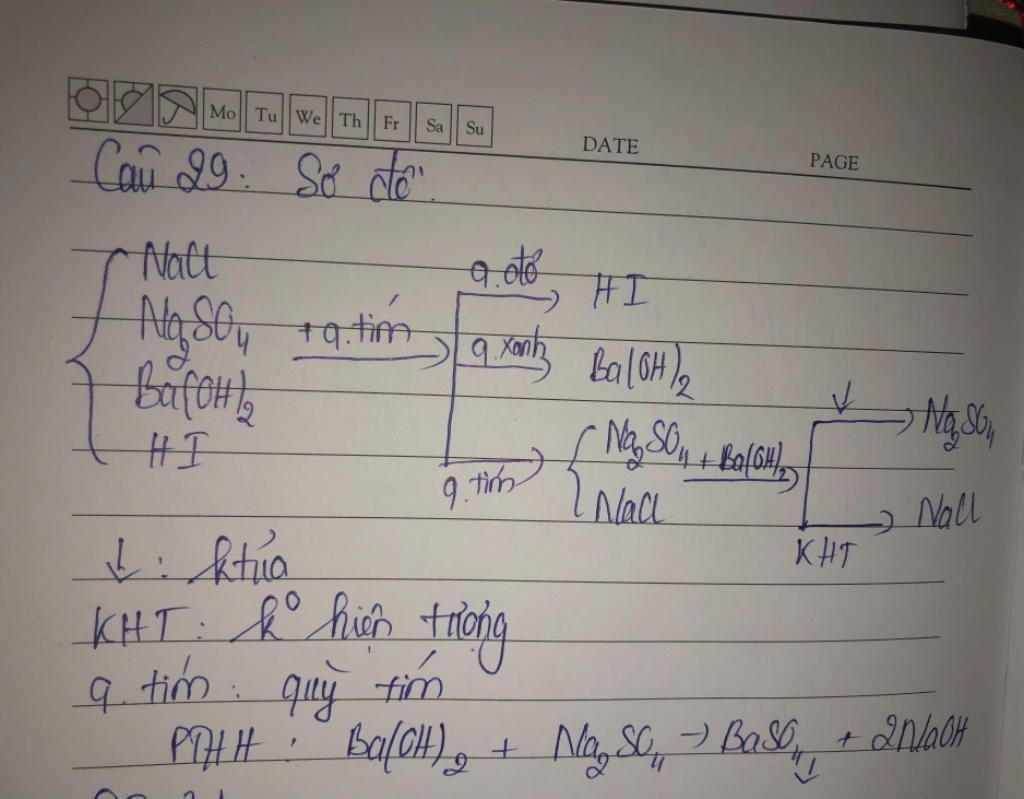 Mo Tu We Th Fr Sa Su
DATE PAGE
Câu 29: Sơ đồ.
NaCl
Na2SO4
Ba(OH)2
HI
+ q.tím
q.đỏ
HI
q.xanh
Ba(OH)2
q.tím
Na2SO4
NaCl
+ Ba(OH)2
↓
Na2SO4
KHT
NaCl
↓: ktủa
KHT: k° hiện tượng
q. tím: quỳ tím
PTHH: Ba(OH)2 + Na2SO4 → BaSO4↓ + 2NaOH